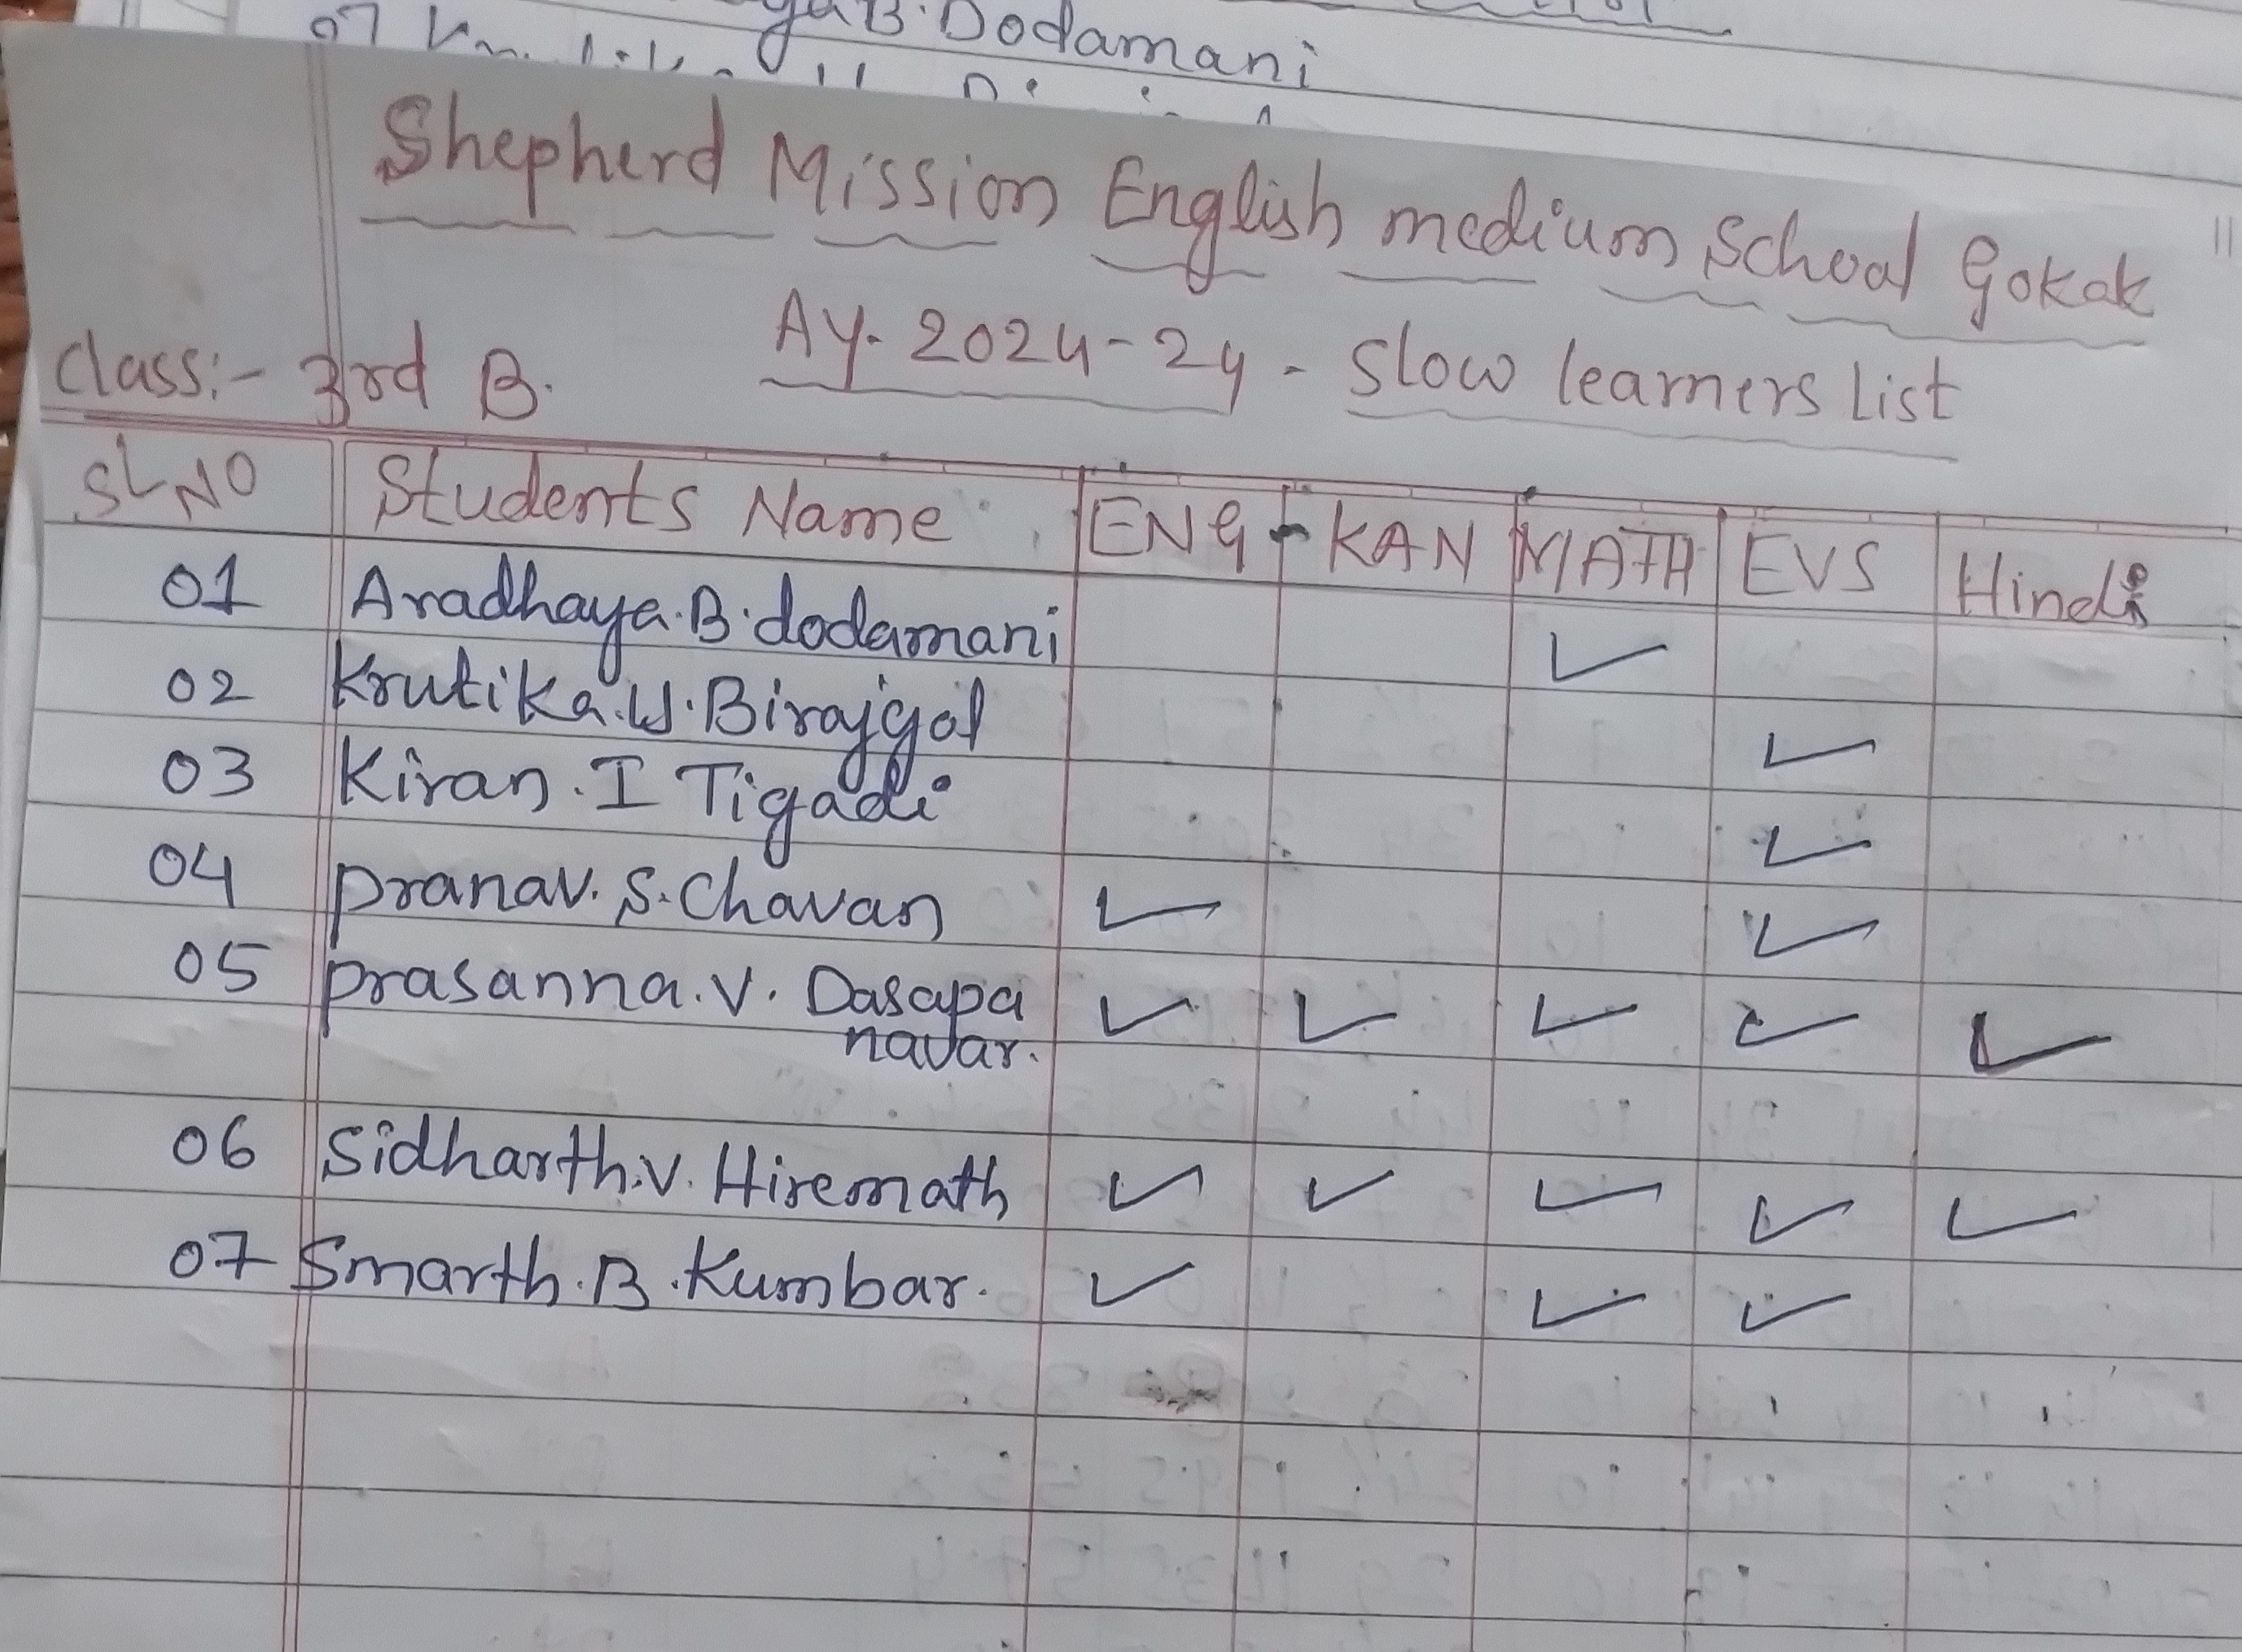 B. Dodamani
07
Shepherd Mission English medium School Gokak
AY. 2024-24 - Slow learners list
Class:- 3rd B.
SL NO Students Name ENG KAN MATH EVS Hindi
01 Aradhaya. B. dodamani ✓
02 Krutika. U. Birajgol ✓
03 Kiran. I Tigadi ✓
04 Pranav. S. Chavan ✓ ✓
05 Prasanna. V. Dasapa ✓ ✓ ✓ ✓ ✓
navar.
06 Sidharth. V. Hiremath ✓ ✓ ✓ ✓ ✓
07 Smarth. B. Kumbar. ✓ ✓ ✓